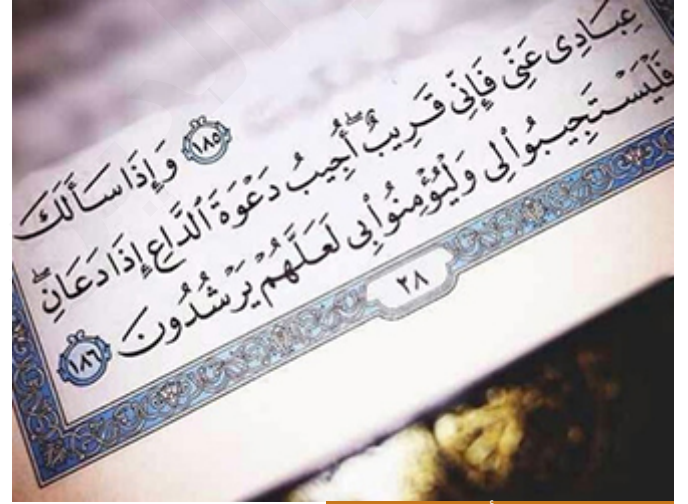 ۝١٨٥ وَإِذَا سَأَلَكَ
عِبَادِى عَنِّى فَإِنِّى قَرِيبٌ ۖ أُجِيبُ دَعْوَةَ ٱلدَّاعِ إِذَا دَعَانِ ۖ
فَلْيَسْتَجِيبُوا۟ لِى وَلْيُؤْمِنُوا۟ بِى لَعَلَّهُمْ يَرْشُدُونَ ۝١٨٦
٢٨